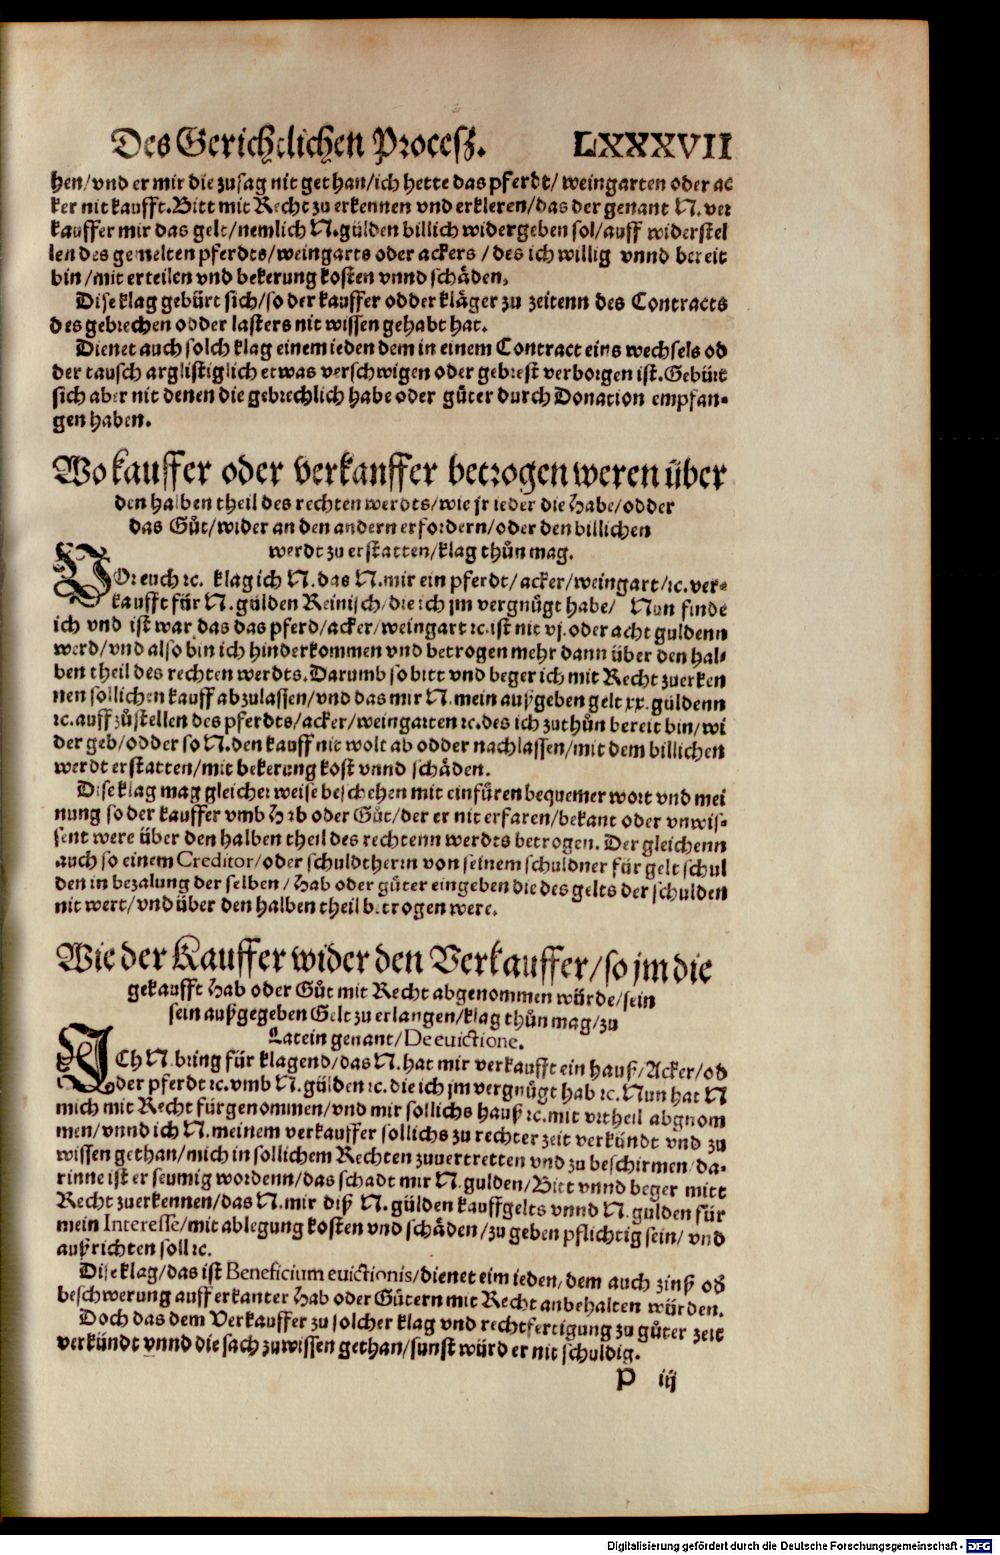 Des Gerichtlichen Procesz. LXXXVII
hen/vnd er mir die zusag nit gethan/ich hette das pferdt/weingarten oder ac
ker nit kaufft. Bitt mit Recht zu erkennen vnd erkleren/das der genant N. ver
kauffer mir das gelt/nemlich N. gülden billich widergeben sol/auff widerstel
len des gemelten pferdts/weingarts oder ackers/des ich willig vnnd bereit
bin/mit erteilen vnd bekerung kosten vnnd schäden.
Dise klag gebürt sich/so der kauffer odder kläger zu zeitenn des Contracts
des gebrechen odder lasters nit wissen gehabt hat.
Dienet auch solch klag einem ieden dem in einem Contract eins wechsels od
der tausch arglistiglich etwas verschwigen oder gebrest verborgen ist. Gebürt
sich aber nit denen die gebrechlich habe oder güter durch Donation empfan-
gen haben.
Wo kauffer oder verkauffer betrogen weren über
den halben theil des rechten werdts/wie jr ieder die Habe/odder
das Gůt/wider an den andern erfordern/oder den billichen
werdt zu erstatten/klag thůn mag.
VOr euch ꝛc. klag ich N. das N. mir ein pferdt/acker/weingart/ꝛc. ver-
kaufft für N. gülden Reinisch/die ich jm vergnügt habe/ Nun finde
ich vnd ist war das das pferd/acker/weingart ꝛc. ist nit vj. oder acht guldenn
werd/vnd also bin ich hinderkommen vnd betrogen mehr dann über den hal-
ben theil des rechten werdts. Darumb so bitt vnd beger ich mit Recht zuerken
nen sollichen kauff abzulassen/vnd das mir N. mein außgeben gelt xx. güldenn
ꝛc. auff zůstellen des pferdts/acker/weingarten ꝛc. des ich zuthůn bereit bin/wi
der geb/odder so N. den kauff nit wolt ab odder nachlassen/mit dem billichen
werdt erstatten/mit bekerung kost vnnd schäden.
Dise klag mag gleicher weise beschehen mit einfüren bequemer wort vnd mei
nung so der kauffer vmb Hab oder Gůt/der er nit erfaren/bekant oder vnwis-
sent were über den halben theil des rechtenn werdts betrogen. Der gleichenn
auch so einem Creditor/oder schuldtherrn von seinem schuldner für gelt schul
den in bezalung der selben/Hab oder güter eingeben die des gelts der schulden
nit wert/vnd über den halben theil betrogen were.
Wie der Kauffer wider den Verkauffer/so jm die
gekaufft Hab oder Gůt mit Recht abgenommen würde/sein
sein außgegeben Gelt zu erlangen/klag thůn mag/zu
Latein genant/De euictione.
ICh N. bring für klagend/das N. hat mir verkaufft ein hauß/Acker/od
der pferdt ꝛc. vmb N. gülden ꝛc. die ich jm vergnügt hab ꝛc. Nun hat N
mich mit Recht fürgenommen/vnd mir sollichs hauß ꝛc. mit vrtheil abgnom
men/vnnd ich N. meinem verkauffer sollichs zu rechter zeit verkündt vnd zu
wissen gethan/mich in sollichem Rechten zuuertretten vnd zu beschirmen/da-
rinne ist er seumig wordenn/das schadt mir N. gulden/Bitt vnnd beger mitt
Recht zuerkennen/das N. mir diß N. gülden kauffgelts vnnd N. gülden für
mein Interesse/mit ablegung kosten vnd schäden/zu geben pflichtig sein/vnd
außrichten soll ꝛc.
Dise klag/das ist Beneficium euictionis/dienet eim ieden/dem auch zinß od
beschwerung auff erkanter Hab oder Gütern mit Recht anbehalten würden.
Doch das dem Verkauffer zu solcher klag vnd rechtfertigung zu gůter zeit
verkündt vnnd die sach zuwissen gethan/sunst würd er nit schuldig.
P iij
Digitalisierung gefördert durch die Deutsche Forschungsgemeinschaft - DFG